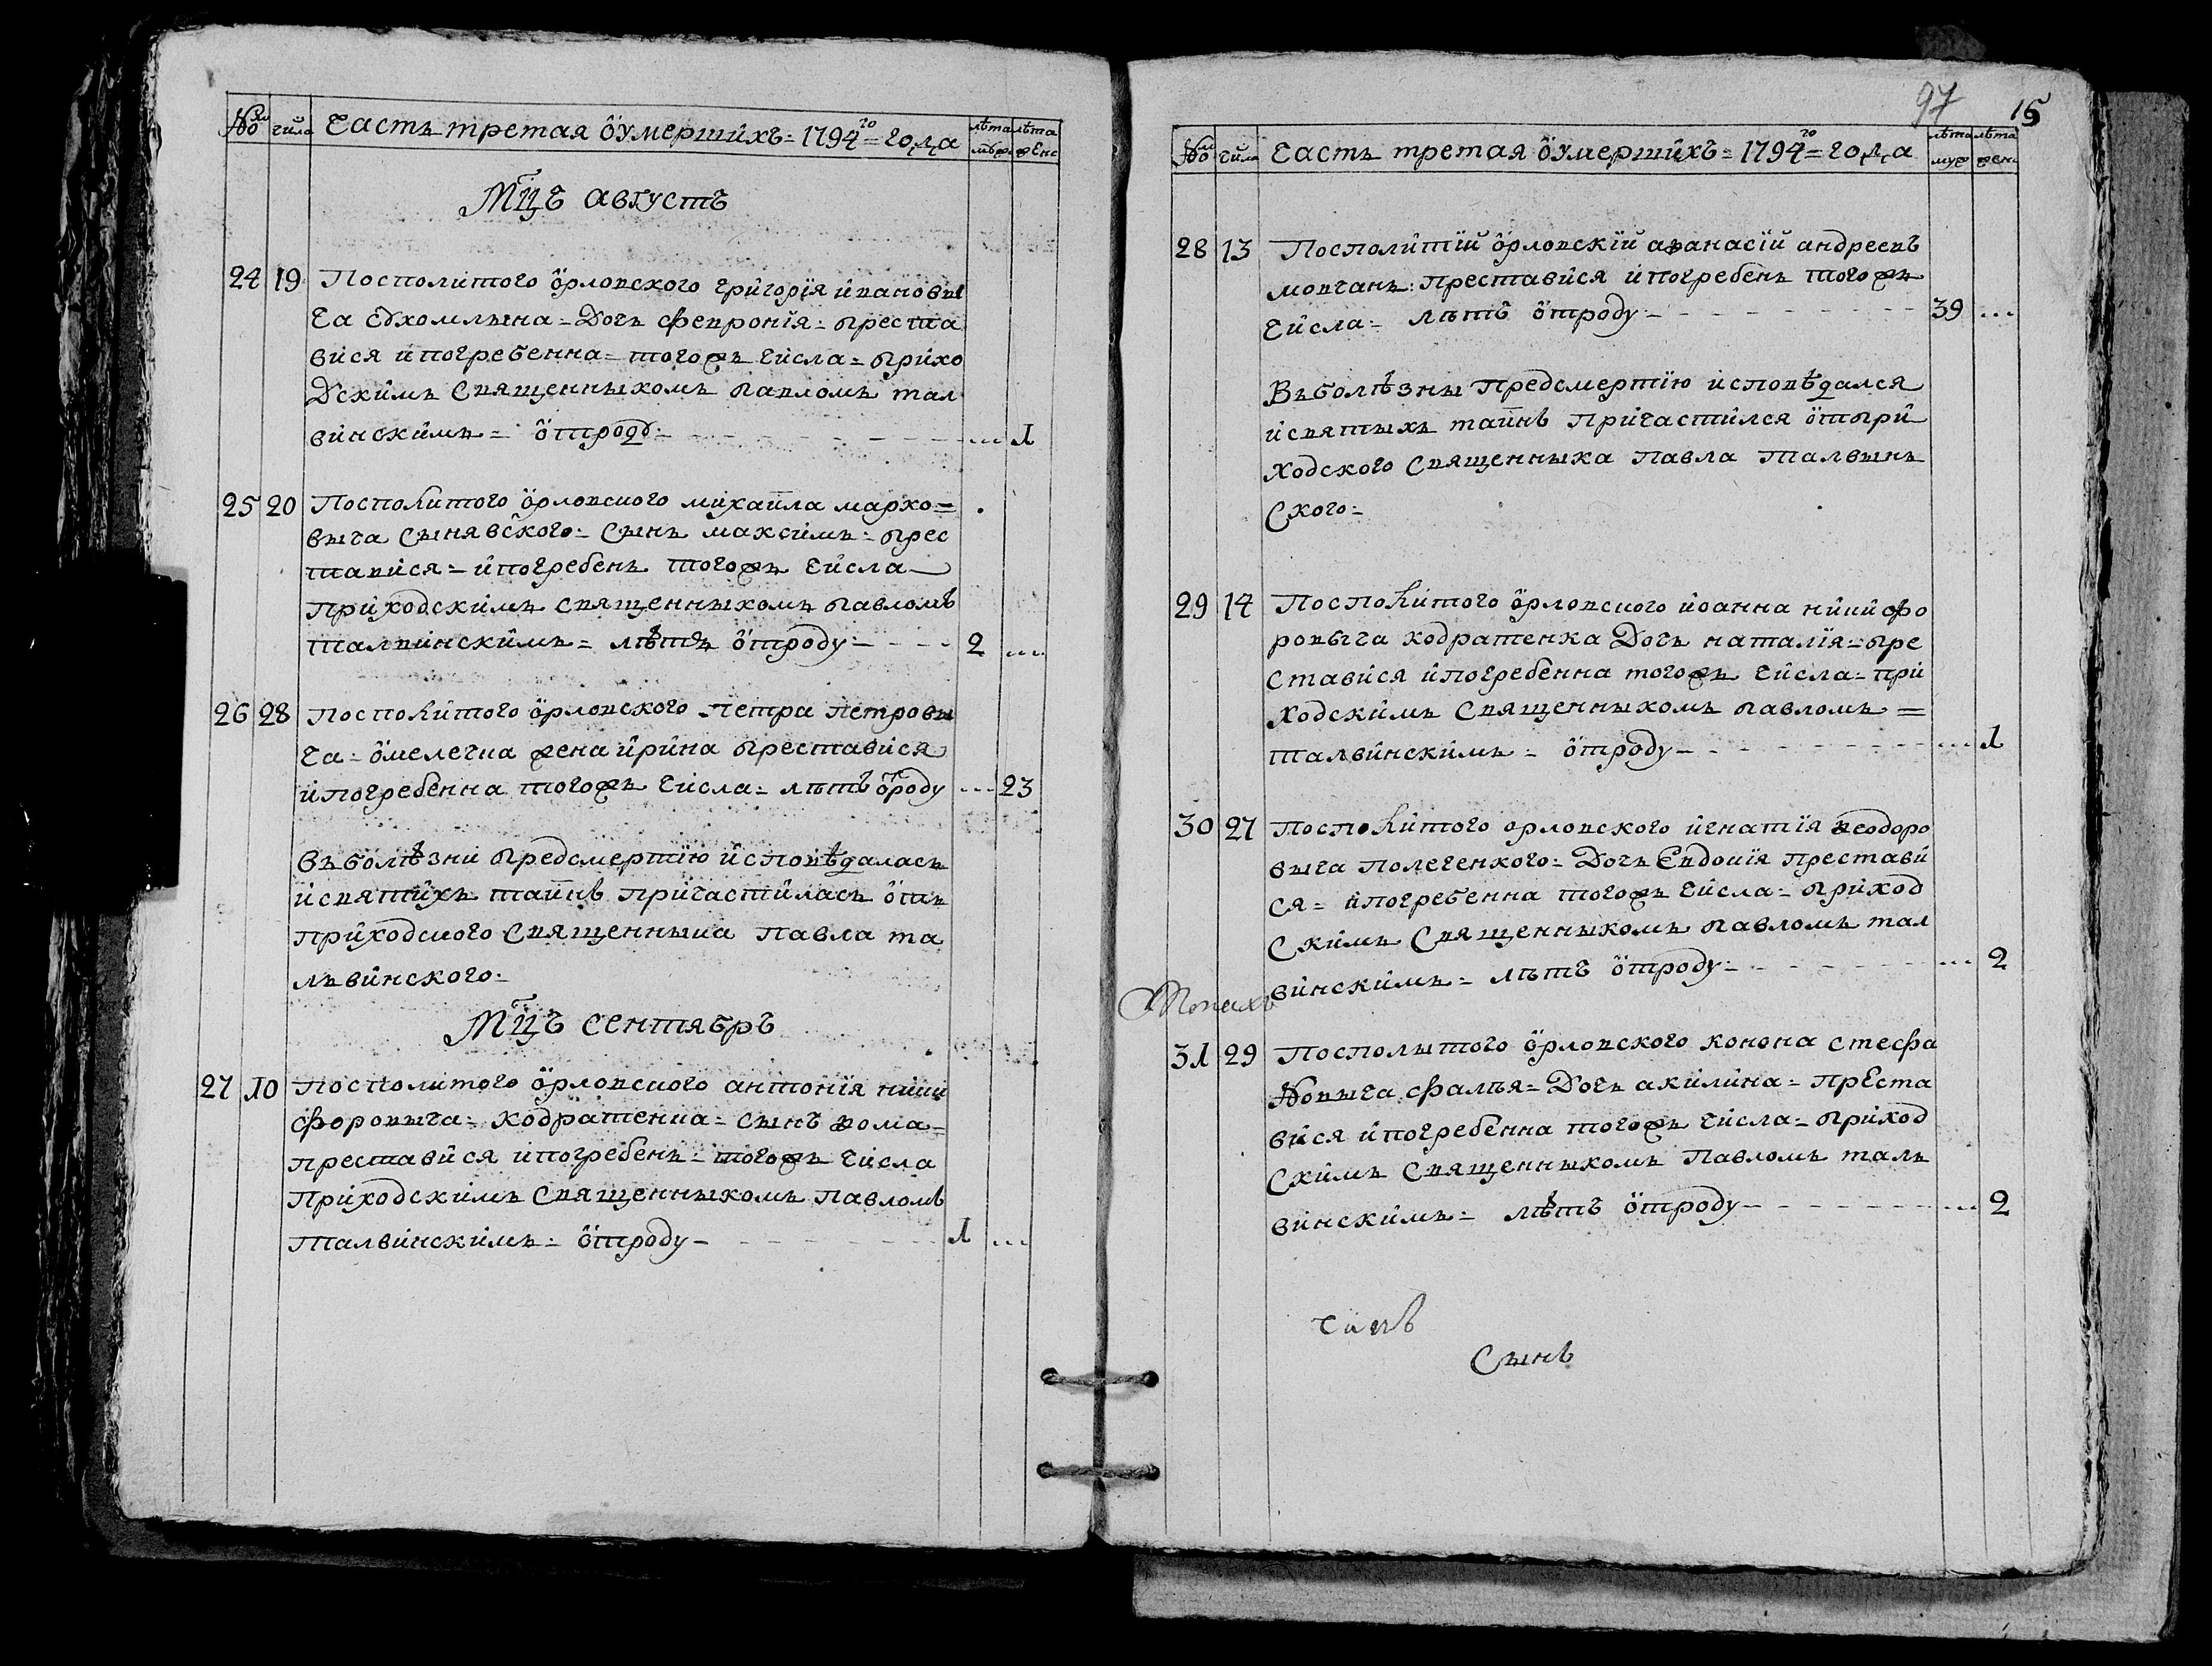 № чила Часть третая оумершихъ = 1794го = года лѣта муж лѣта женс
Мцъ августъ
24 19 Посполитого орловского григорія иванови
ча сухомлына = дочь февронія = преста
вися и погребенна = того жъ числа = прихо
дскимъ священныкомъ павломъ тал
винскимъ = отроду ... 1
25 20 Посполитого орловского михаила марко=
выча сынявского = сынъ максимъ = прес
тавися = и погребенъ того жъ числа
приходскимъ священныкомъ павломъ
талвинскимъ = лѣтъ отроду 2 ...
26 28 Посполитого орловского петра петровы
ча = омелечка жена ирина преставися
и погребенна того жъ числа = лѣтъ отроду ... 23
въ болѣзни предсмертїю исповѣдалась
и святихъ таинъ причастилась отъ
приходского священныка павла та
львинского =
Мцъ сентябръ
27 10 Посполитого орловского антонія ники
форовыча = кодратенка = сынъ ѳома =
преставися и погребенъ = того жъ числа
приходскимъ священныкомъ павломъ
талвинскимъ = отроду 1 ...
97 15
№ чила Часть третая оумершихъ = 1794го = года лѣта муж лѣта женс
28 13 Посполитїй орловскїй аѳанасїй андреевъ
мовчанъ = преставися и погребенъ того жъ
числа = лѣтъ отроду 39 ...
Въ болѣзны предсмертїю исповѣдался
и святыхъ таинъ причастился от при
ходского священныка павла талвынъ
ского =
29 14 Посполитого орловского иоанна никифо
ровыча кодратенка дочь наталїя = пре
ставися и погребенна того жъ числа = при
ходскимъ священныкомъ павломъ =
талвинскимъ = отроду ... 1
30 27 Посполитого орловского игнатїя ѳеодоро
выча полегенкого = дочь Евдокїя престави
ся = и погребенна того жъ числа = приход
скимъ священныкомъ павломъ тал
винскимъ = лѣтъ отроду ... 2
31 29 Посполытого орловского конона стефа
новыча фалѣя = дочь акилина = преста
вися и погребенна того жъ числа = приход
скимъ священныкомъ павломъ таль
винскимъ = лѣтъ отроду ... 2
Сынъ